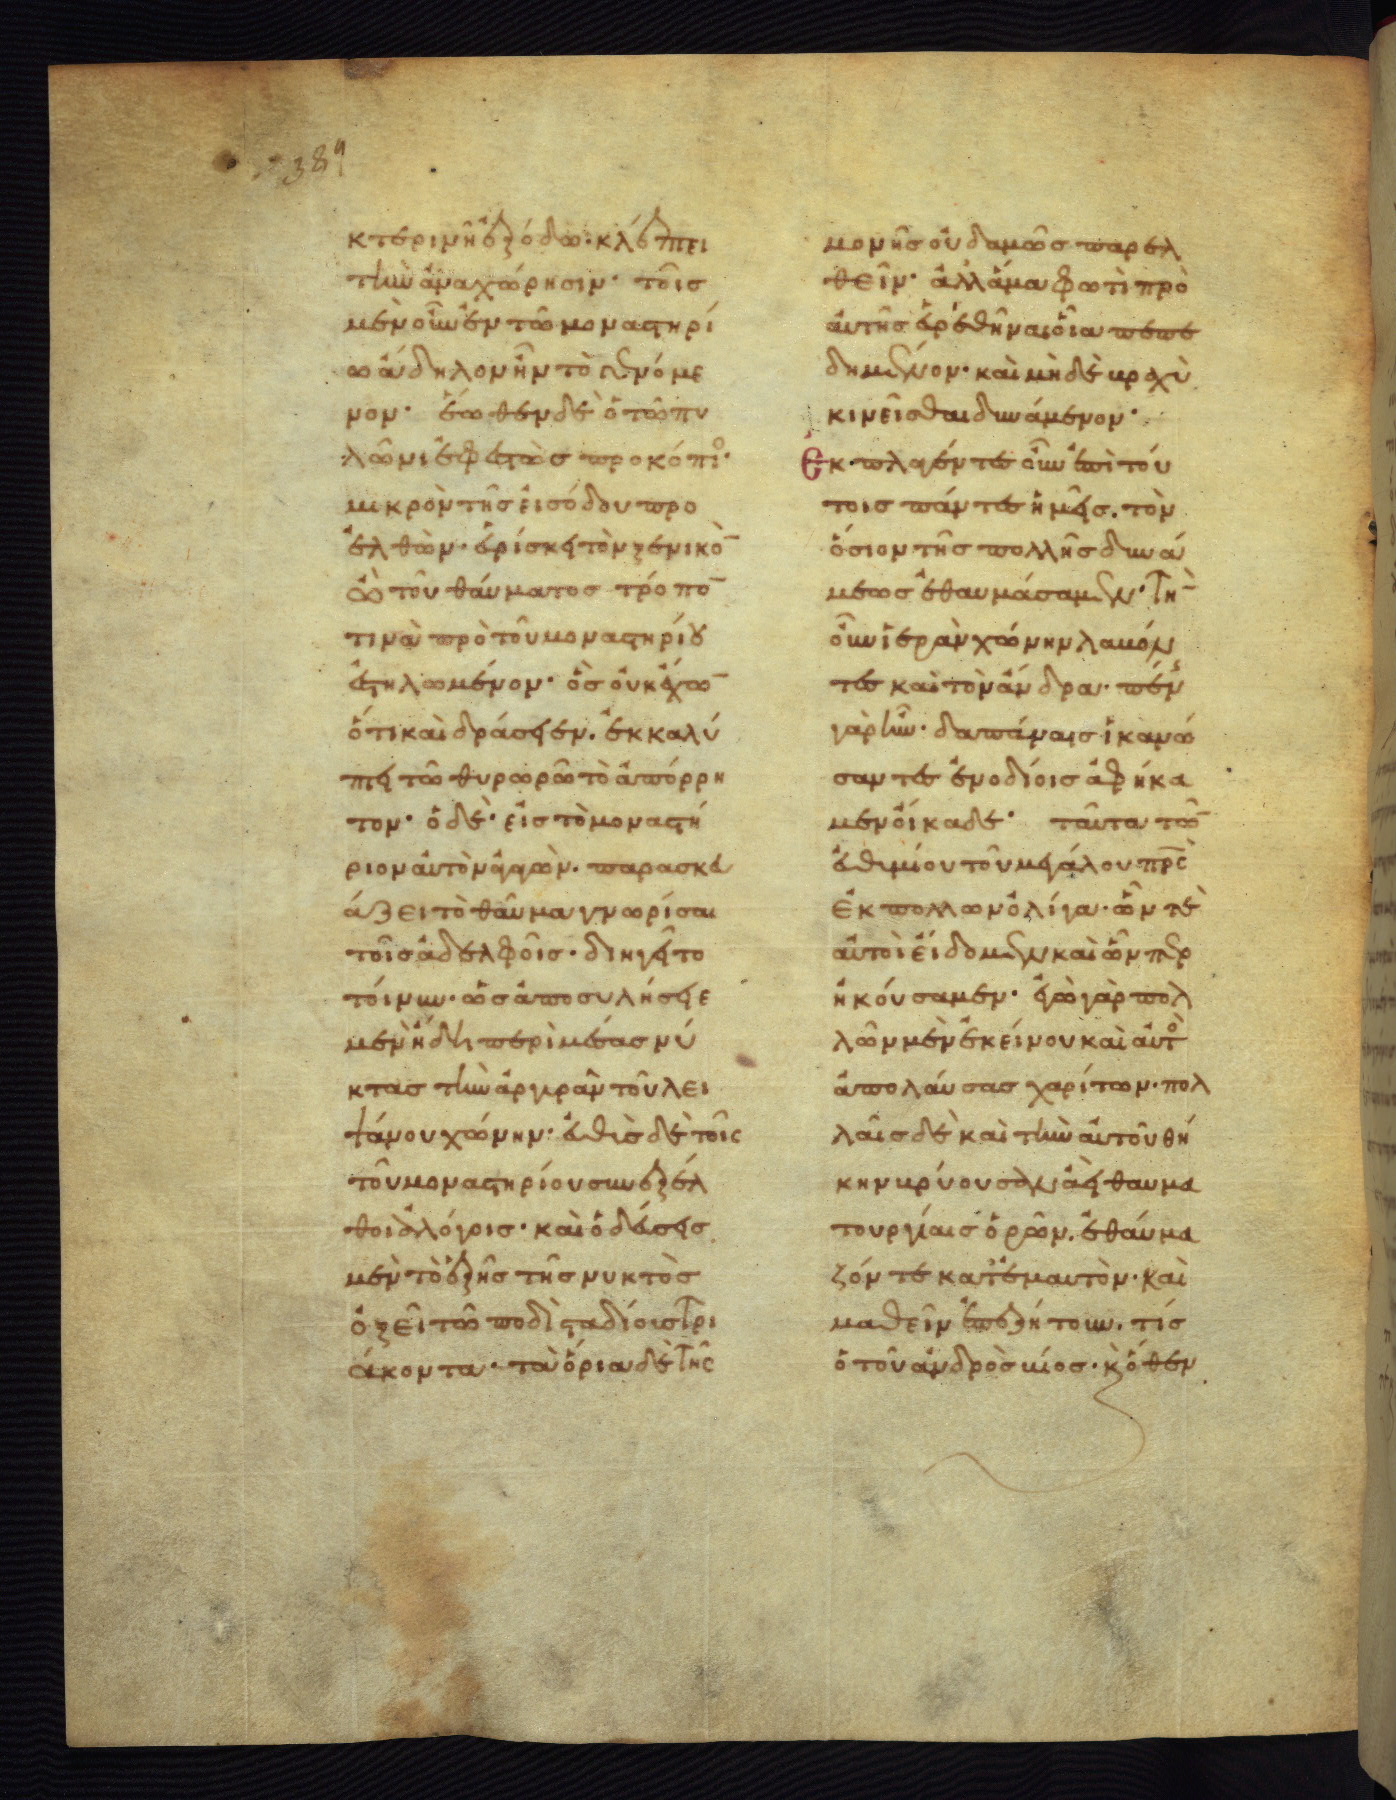 389
κτερινῆ ἐξόδω· κλέπτει
τὴν ἀναχώρησιν· τοῖς
μὲν οὖν ἐν τῶ μοναστηρί
ω ἄδηλον ἦν τὸ γενόμε
νον· ἔξωθεν δὲ ὁ τῶ πυ
λῶνι ἐφεστὼς προκόπιος·
μικρὸν τῆς εἰσόδου προ
ελθὼν· εὑρίσκει τὸν ξενικὸν
τοῦ θαύματος τρόπον
τινὰ πρὸ τοῦ μοναστηρίου
ἐστηλωμένον· ὃς οὐκ ἔχων
ὅτι καὶ δράσειεν. ἐκκαλύ
πτει τῶ θυρωρῶ τὸ ἀπόρρη
τον· ὁ δὲ· εἰς τὸ μοναστή
ριον αὐτὸν ἀγαγὼν· παρασκευ
άζει τὸ θαῦμα γνωρίσαι
τοῖς ἀδελφοῖς· διηγεῖτο
τοίνυν· ὡς ἀποσυλήσειε
μὲν ἤδη περὶ μέσας νύ
κτας τὴν ἀργυρᾶν τοῦ λει
ψάνου χώνην· εὐθὺς δὲ τοῖς
τοῦ μοναστηρίου συνεξέλ
θοι λόγοις· καὶ ὁδεύσεις
μὲν τὸ ἑξῆς τῆς νυκτὸς
ὀξεῖ τῶ ποδὶ σταδίοις τρι
άκοντα· τὰ ὅρια δὲ τῆς
μονῆς οὐδαμῶς παρελ
θεῖν· ἀλλ' ἅμα φωτὶ πρὸ
αὐτῆς εὑρεθῆναι οἷα πεπε
δημένον· καὶ μὴ δὲ βραχὺ
κινεῖσθαι δυνάμενον·
Ἐκπλαγέντες οὖν ἐπὶ τού
τοις πάντες ἡμεῖς. τὸν
ὅσιον τῆς πολλῆς δυνά
μεως ἐθαυμάσαμεν· τὴν
οὖν ἱερὰν χώνην λαβόν
τες καὶ τὸν ἄνδρα· πένης
γὰρ ἦν· δαπάναις ἱκανώ
σαντες ἐνοδίοις ἀφήκα
μεν οἴκαδε· ταῦτα τῶν
εὐθυμίου τοῦ μεγάλου πρς
ἐκ πολλῶν ὀλίγα· ὧν τὲ
αὐτοὶ εἴδομεν καὶ ὧνπερ
ἠκούσαμεν· ἐγὼ γὰρ πολ
λῶν μὲν ἐκείνου καὶ αὐτὸς
ἀπολαύσας χαρίτων· πολ
λαῖς δὲ καὶ τὴν αὐτοῦ θή
κην βρύουσαν ἀεὶ θαυμα
τουργίαις ὁρῶν. ἐθαύμα
ζόν τε κατ' ἐμαυτὸν· καὶ
μαθεῖν ἐπεζήτουν. τίς
ὁ τοῦ ἀνδρὸς βίος· κ ὅθεν